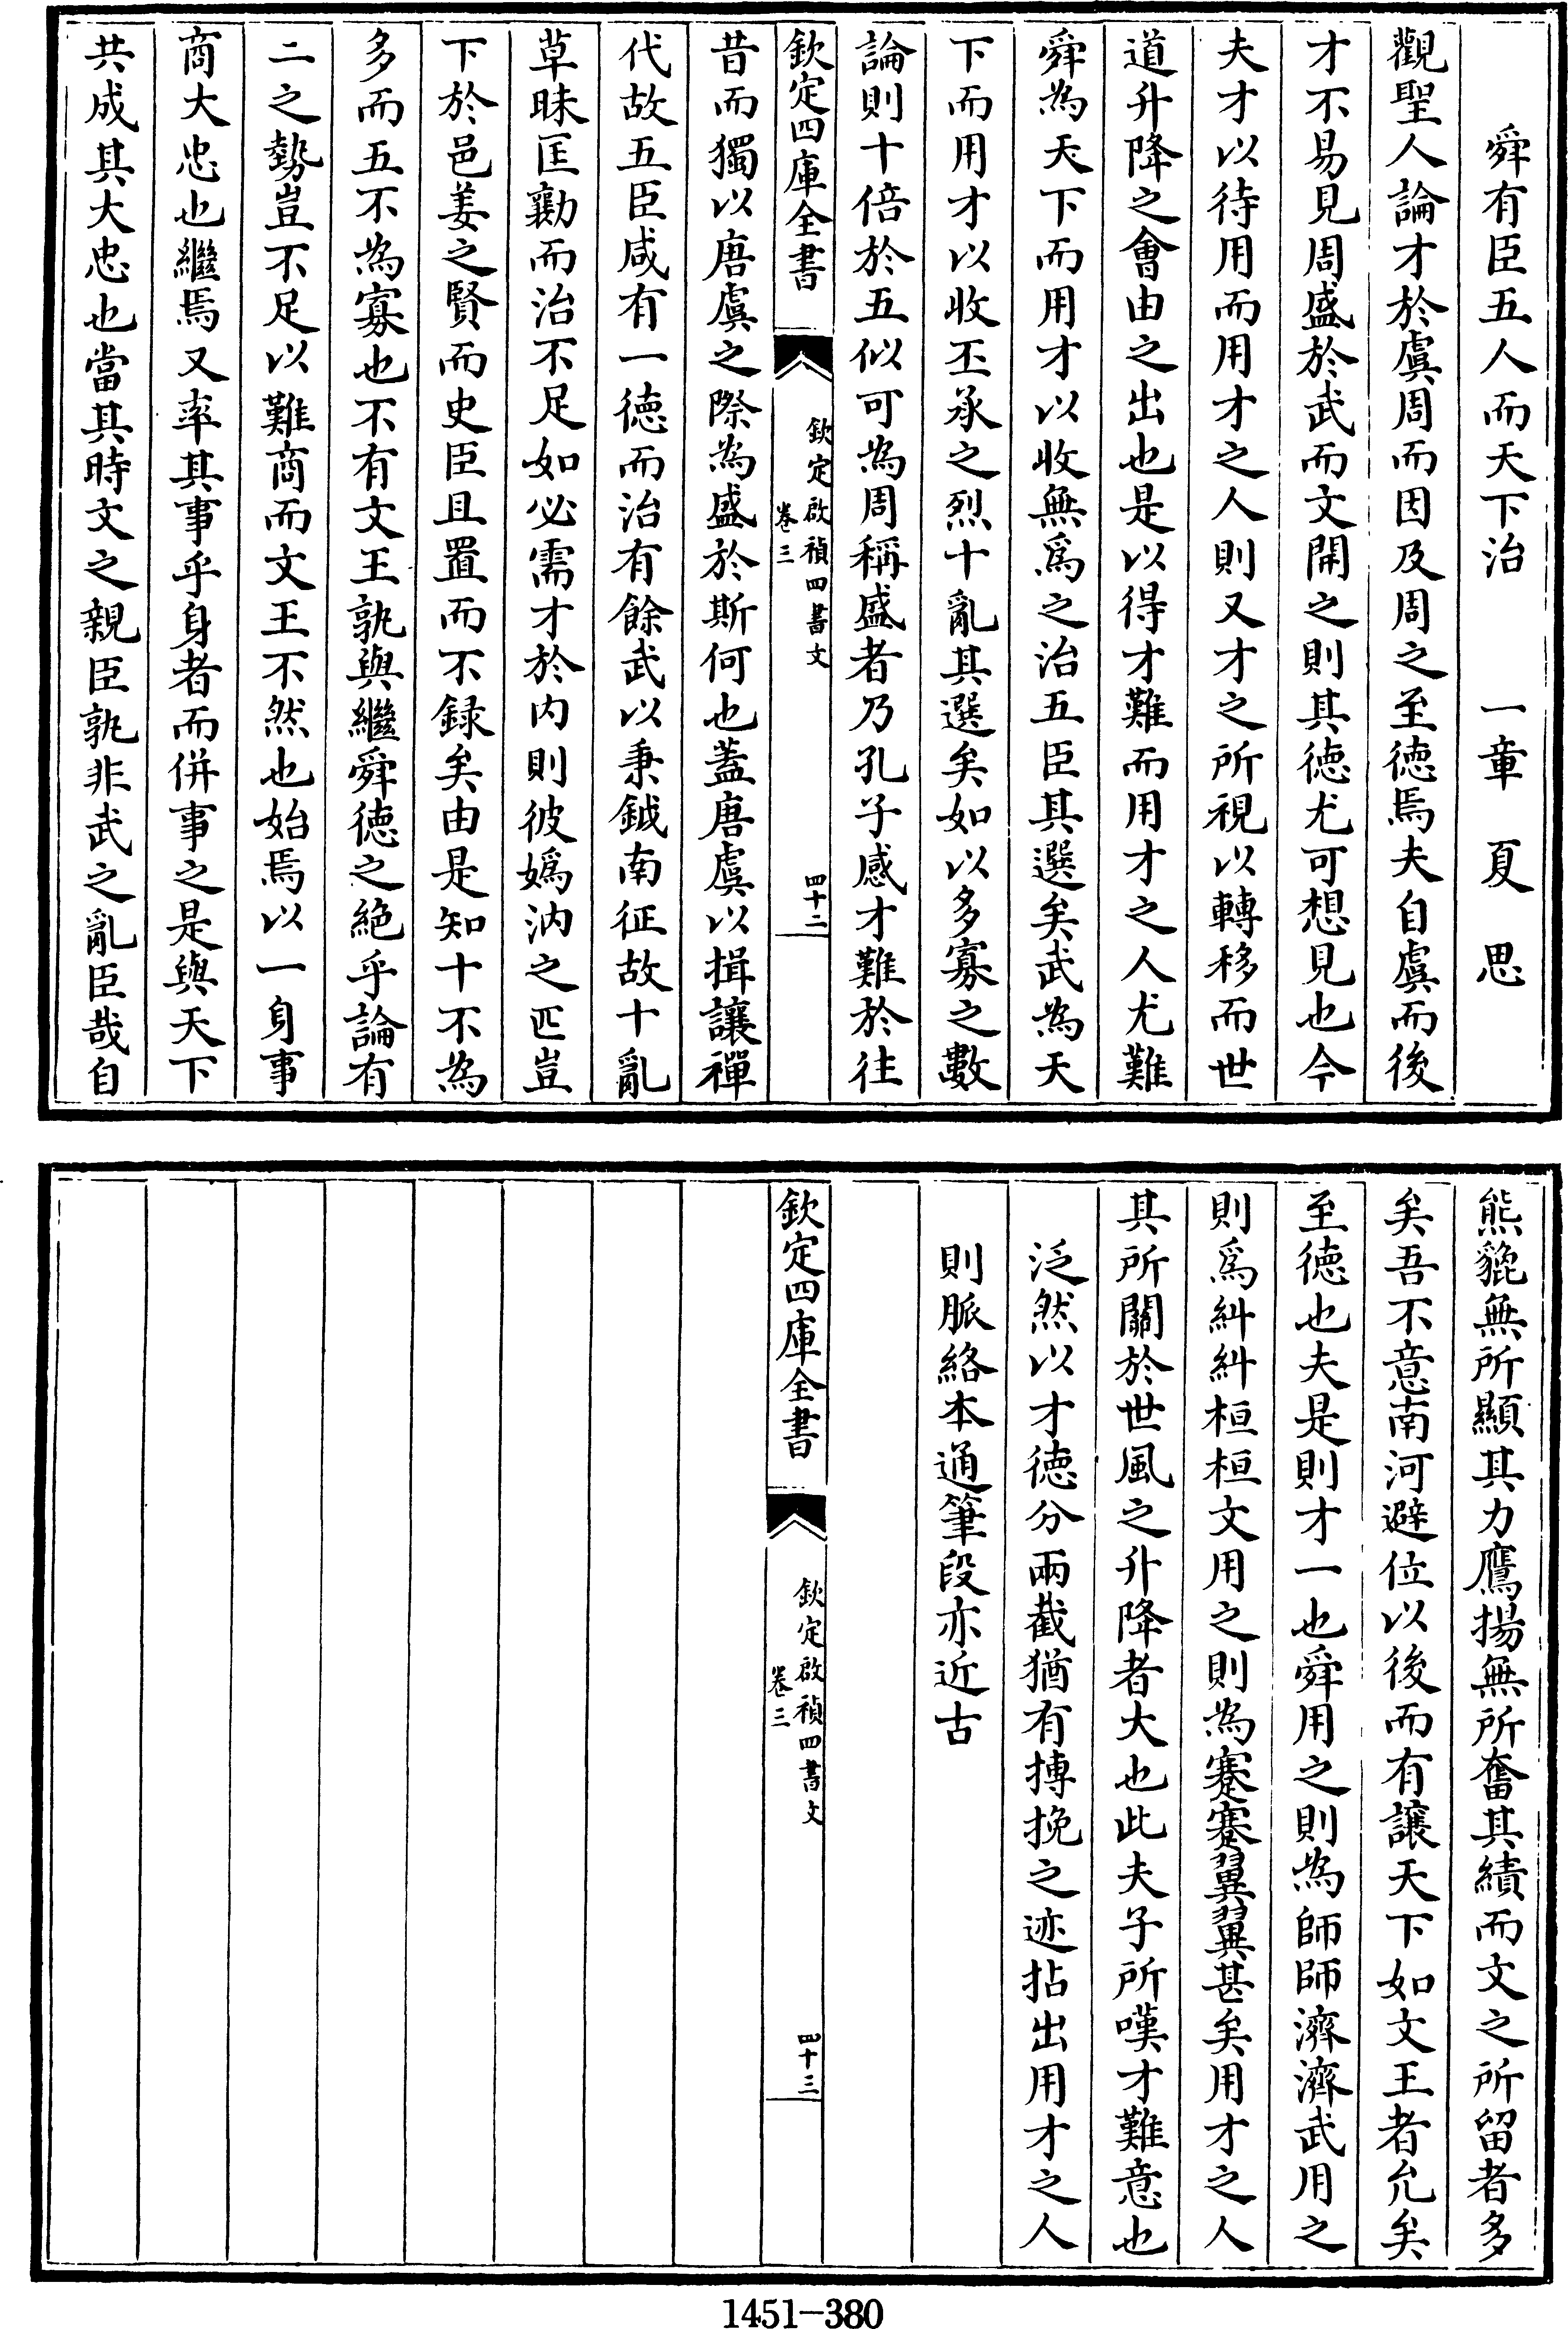 舜有臣五人而天下治 一章 夏思
觀聖人論才於虞周而因及周之至徳焉夫自虞而後
才不易見周盛於武而文開之則其徳尤可想見也今
夫才以待用而用才之人則又才之所視以轉移而世
道升降之會由之出也是以得才難而用才之人尤難
舜為天下而用才以收無爲之治五臣其選矣武為天
下而用才以收丕承之烈十亂其選矣如以多寡之數
論則十倍於五似可為周稱盛者乃孔子感才難於往
欽定四庫全書
欽定啟禎四書文
卷三
四十二
昔而獨以唐虞之際為盛於斯何也蓋唐虞以揖讓禪
代故五臣咸有一徳而治有餘武以秉鉞南征故十亂
草昧匡勷而治不足如必需才於内則彼嬀汭之匹豈
下於邑姜之賢而史臣且置而不録矣由是知十不為
多而五不為寡也不有文王孰與繼舜徳之絶乎論有
二之勢豈不足以難商而文王不然也始焉以一身事
商大忠也繼焉又率其事乎身者而併事之是與天下
共成其大忠也當其時文之親臣孰非武之亂臣哉自
熊貔無所顯其力鷹揚無所奮其績而文之所留者多
矣吾不意南河避位以後而有讓天下如文王者允矣
至徳也夫是則才一也舜用之則為師師濟濟武用之
則爲糾糾桓桓文用之則為蹇蹇翼翼甚矣用才之人
其所關於世風之升降者大也此夫子所嘆才難意也
泛然以才徳分兩截猶有摶挽之迹拈出用才之人
則脈絡本通筆段亦近古
欽定四庫全書
欽定啟禎四書文
卷三
四十三
1451-380